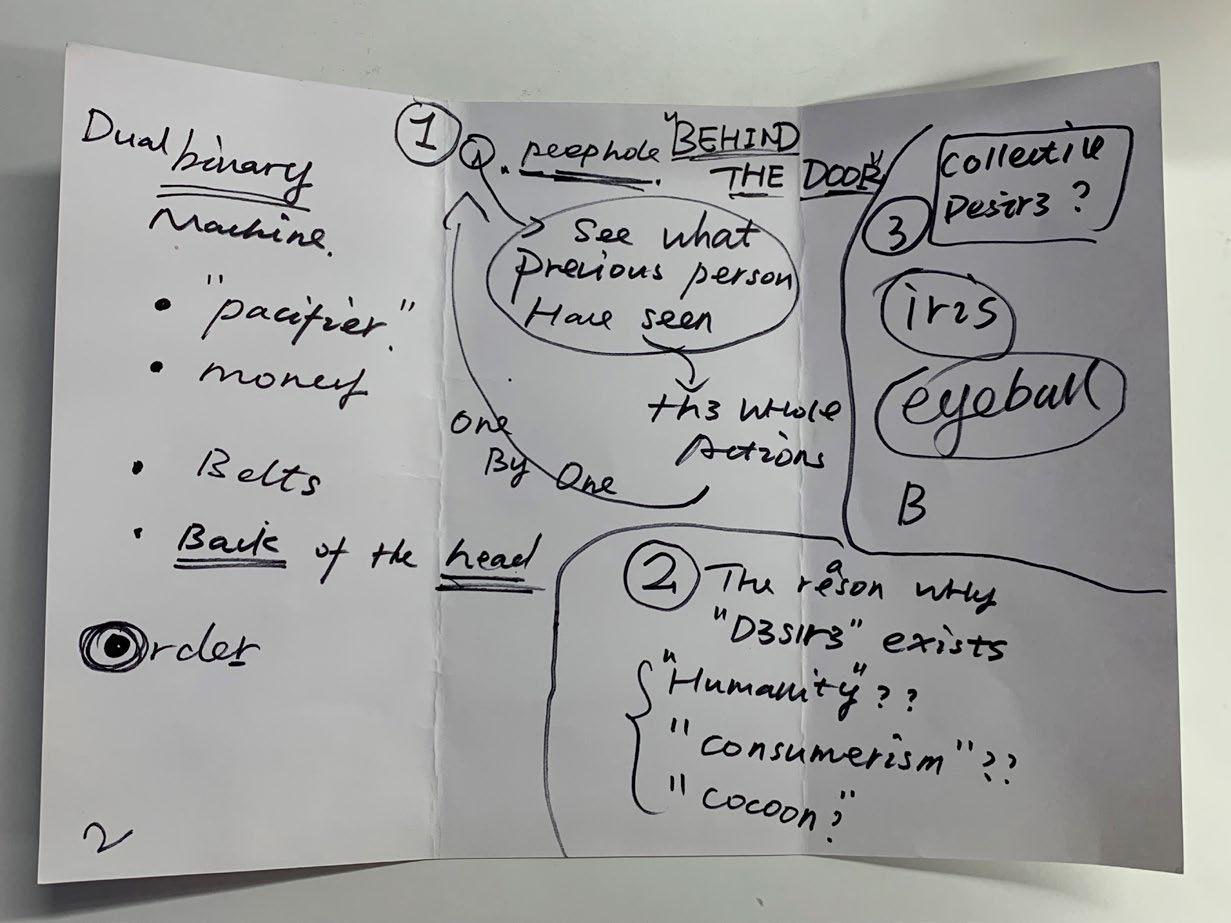 Dual binary
Machine.
• "pacifier."
• money
• Belts
• Back of the head
Order
2
1
Q. peephole. "BEHIND
THE DOOR"
See what
previous person
Have seen
th3 whole
Actions
one
By One
2 The reason why
"D3sir3" exists
"Humanity" ??
"consumerism" ??
"cocoon?"
3
collective
Desir3 ?
iris
eyeball
B